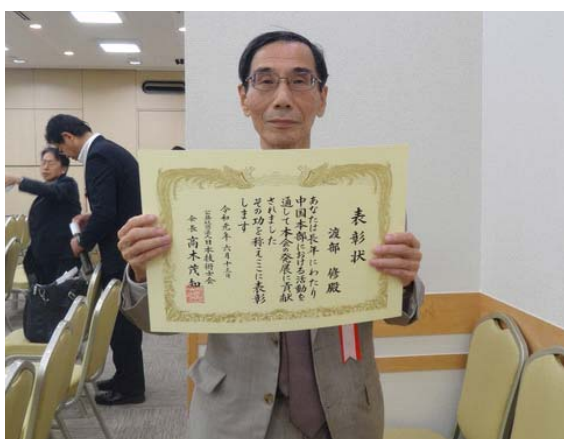 表彰状
渡部 修殿
あなたは長年にわたり
中国本部における活動を
通して本会の発展に貢献
されました
その功を称えここに表彰
します
令和元年六月十三日
公益社団法人日本技術士会
会長 高木茂知